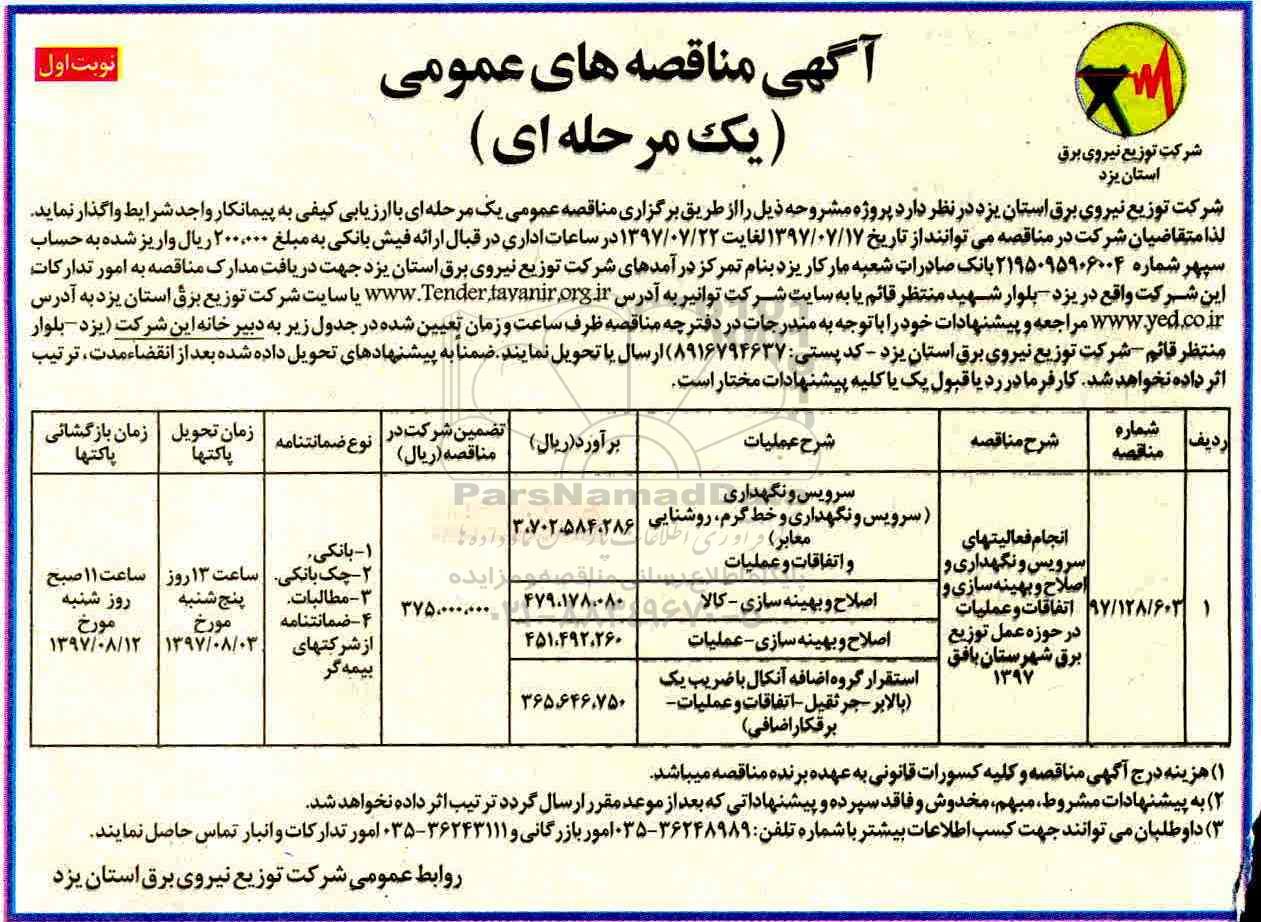 نوبت اول
آگهی مناقصه های عمومی
(یک مرحله ای)
شرکت توزیع نیروی برق
استان یزد
شرکت توزیع نیروی برق استان یزد در نظر دارد پروژه مشروحه ذیل را از طریق برگزاری مناقصه عمومی یک مرحله ای با ارزیابی کیفی به پیمانکار واجد شرایط واگذار نماید.
لذا متقاضیان شرکت در مناقصه می توانند از تاریخ ۱۳۹۷/۰۷/۱۷ لغایت ۱۳۹۷/۰۷/۲۲ در ساعات اداری در قبال ارائه فیش بانکی به مبلغ ۲۰۰،۰۰۰ ریال واریز شده به حساب
سپهر شماره ۲۱۹۵۰۹۵۹۰۶۰۰۴ بانک صادرات شعبه مارکار یزد بنام تمرکز درآمدهای شرکت توزیع نیروی برق استان یزد جهت دریافت مدارک مناقصه به امور تدارکات
این شرکت واقع در یزد –بلوار شهید منتظر قائم یا به سایت شرکت توانیر به آدرس www.Tender.tavanir.org.ir یا سایت شرکت توزیع برق استان یزد به آدرس
www.yed.co.ir مراجعه و پیشنهادات خود را با توجه به مندرجات در دفترچه مناقصه ظرف ساعت و زمان تعیین شده در جدول زیر به دبیر خانه این شرکت (یزد –بلوار
منتظر قائم –شرکت توزیع نیروی برق استان یزد – کد پستی: ۸۹۱۶۷۹۴۶۳۷) ارسال یا تحویل نمایند. ضمناً به پیشنهادهای تحویل داده شده بعد از انقضاء مدت، ترتیب
اثر داده نخواهد شد. کارفرما در رد یا قبول یک یا کلیه پیشنهادات مختار است.
ردیف
شماره
مناقصه
شرح مناقصه
شرح عملیات
برآورد(ریال)
تضمین شرکت در
مناقصه(ریال)
نوع ضمانتنامه
زمان تحویل
پاکتها
زمان بازگشائی
پاکتها
۱
۹۷/۱۲۸/۶۰۳
انجام فعالیتهای
سرویس و نگهداری و
اصلاح و بهینه سازی و
اتفاقات و عملیات
در حوزه عمل توزیع
برق شهرستان بافق
۱۳۹۷
سرویس و نگهداری
(سرویس و نگهداری و خط گرم، روشنایی
معابر)
و اتفاقات و عملیات
۳،۷۰۲،۵۸۴،۲۸۶
اصلاح و بهینه سازی – کالا
۴۷۹،۱۷۸،۰۸۰
اصلاح و بهینه سازی – عملیات
۴۵۱،۴۹۲،۲۶۰
استقرار گروه اضافه آنکال با ضریب یک
(بالابر – جرثقیل – اتفاقات و عملیات –
برقکار اضافی)
۳۶۵،۶۴۶،۷۵۰
۳۷۵،۰۰۰،۰۰۰
۱–بانکی.
۲–چک بانکی.
۳–مطالبات.
۴–ضمانتنامه
از شرکتهای
بیمه گر
ساعت ۱۳ روز
پنج شنبه
مورخ
۱۳۹۷/۰۸/۰۳
ساعت ۱۱ صبح
روز شنبه
مورخ
۱۳۹۷/۰۸/۱۲
ParsNamadData
پایگاه اطلاع رسانی مناقصه و مزایده
۱) هزینه درج آگهی مناقصه و کلیه کسورات قانونی به عهده برنده مناقصه میباشد.
۲) به پیشنهادات مشروط، مبهم، مخدوش و فاقد سپرده و پیشنهاداتی که بعد از موعد مقرر ارسال گردد ترتیب اثر داده نخواهد شد.
۳) داوطلبان می توانند جهت کسب اطلاعات بیشتر با شماره تلفن: ۳۶۲۴۸۹۸۹–۰۳۵ امور بازرگانی و ۳۶۲۴۳۱۱۱–۰۳۵ امور تدارکات و انبار تماس حاصل نمایند.
روابط عمومی شرکت توزیع نیروی برق استان یزد